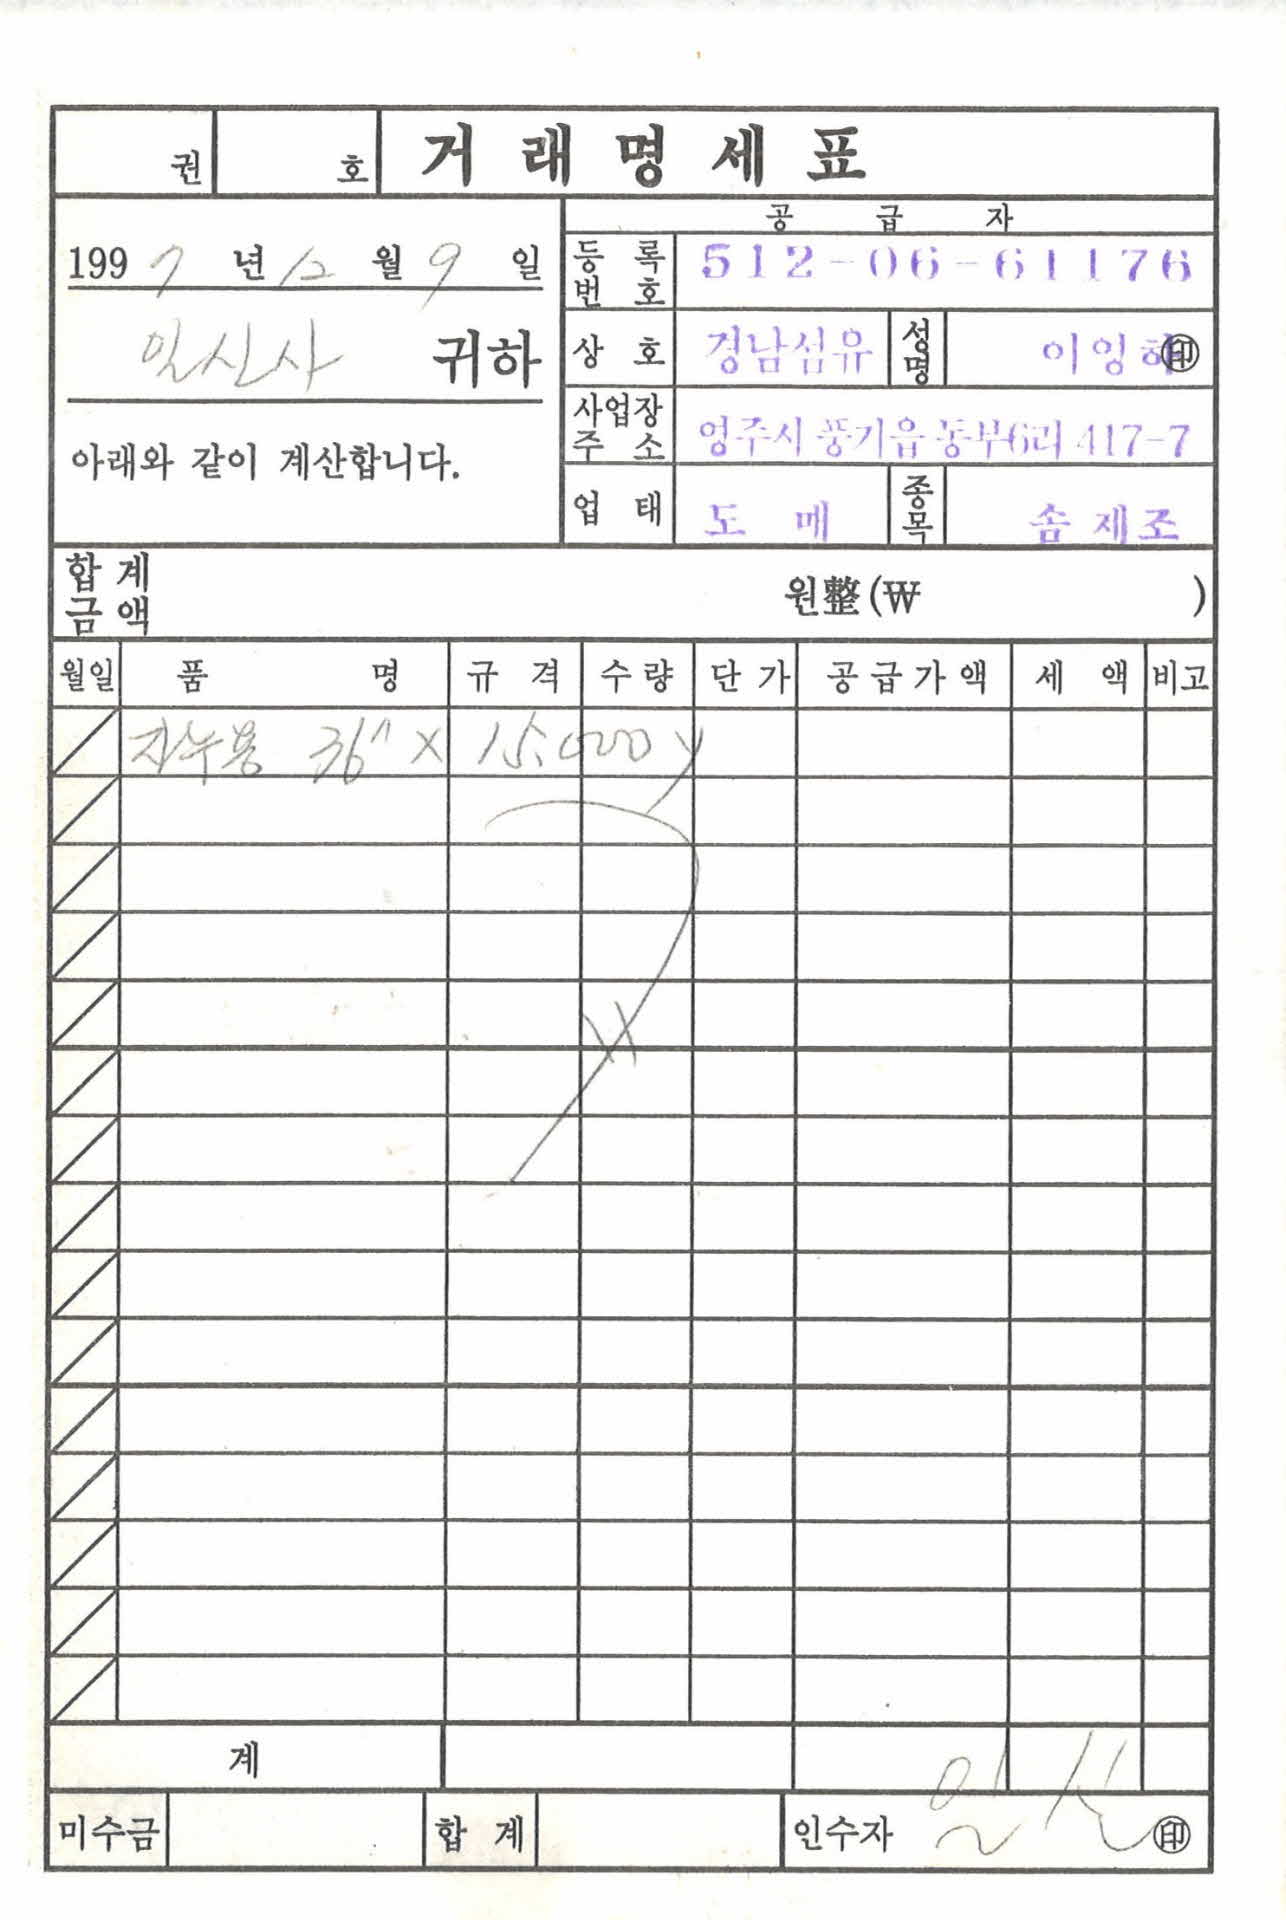 권 호 거래명세표
1997년 12월 9일
일신사 귀하
아래와 같이 계산합니다.
공급자
등록번호 512-06-61176
상호 경남섬유 성명 이잉하 印
사업장주소 영주시 풍기읍 동부6리 417-7
업태 도매 종목 솜제조
합계금액 원整(₩ )
월일 품명 규격 수량 단가 공급가액 세액 비고
자수용 36" X 15,000y
계
미수금 합계 인수자 일신 印